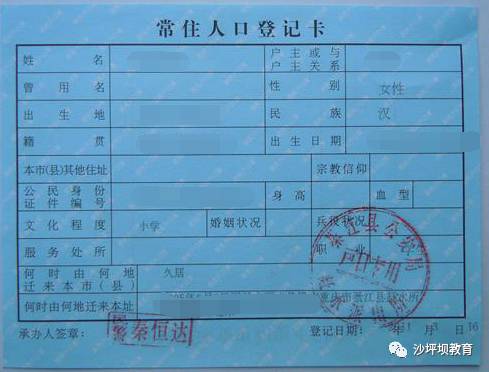 常住人口登记卡
姓 名 户主或与
户主关系
曾用名 性 别 女性
出生地 民 族 汉
籍 贯 出生日期
本市(县)其他住址 宗教信仰
公民身份
证件编号 身高 血型
文化程度 小学 婚姻状况 兵役状况
服务处所 职
何时由何地
迁来本市(县) 久居
何时由何地迁来本址
承办人签章: 秦恒达 登记日期: 1 3 16
江县公安局
户口专用
沙坪坝教育